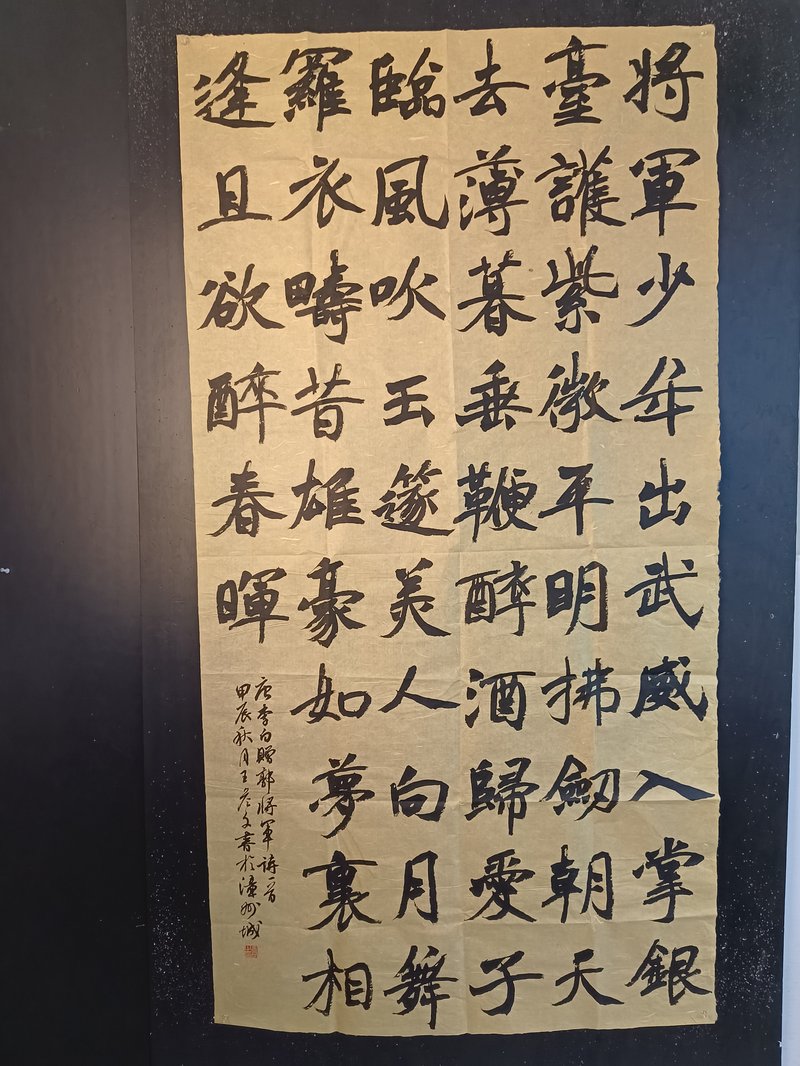 将軍少年出武威入掌銀
臺護紫微平明拂劒朝天
去薄暮垂鞭醉酒歸愛子
臨風吹玉篴美人向月舞
羅衣疇昔雄豪如夢裏相
逢且欲醉春暉
唐李白贈郭将軍詩一首
甲辰秋月王彦文書於漳州城